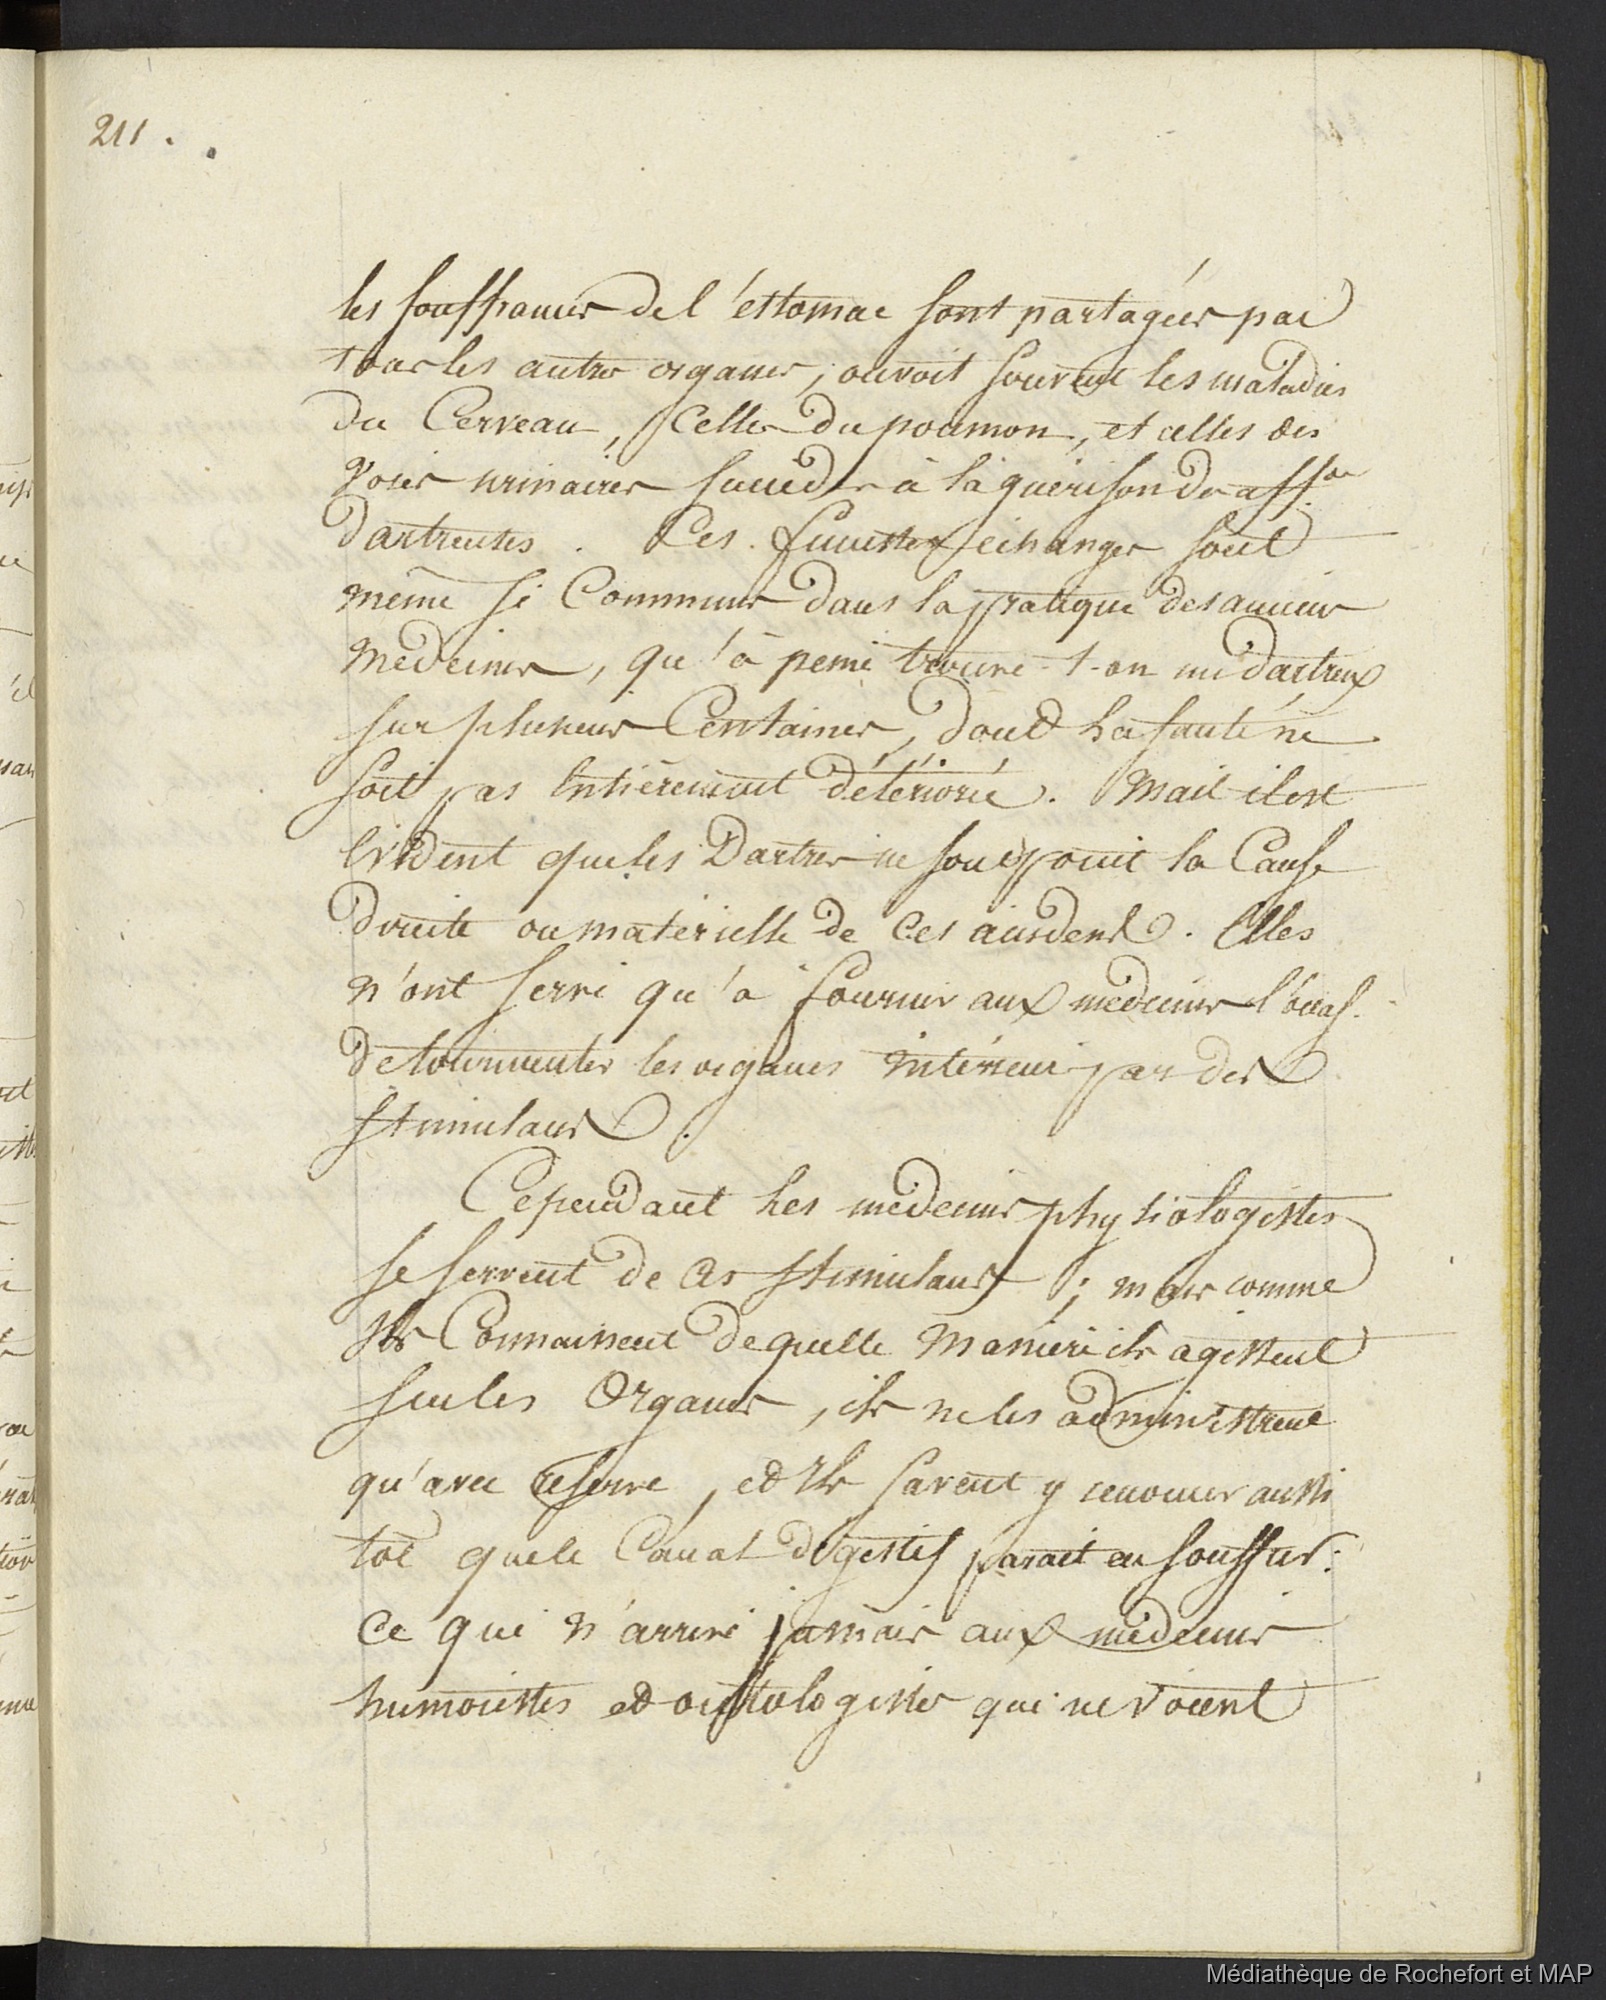 211.
les souffrances de l'éstomac sont partagées par
tous les autres organes, on voit souvent les maladies
du Cerveau, Celles du poumon, et celles des
voies urinaires succéder à la guérison des aff.on
Dartreuses. Ces funestes échanges sont
même si Communs dans la pratique des anciens
médecins, qu'à peine trouve-t-on un dartreux
sur plusieurs Centaines, dont la santé ne
soit pas Entièrement détériorée. Mais il est
Evident que les Dartres ne sont point la Cause
Directe ou matérielle de Ces accidents. Elles
n'ont servi qu'à fournir aux médecins l'occas.
De tourmenter les organes intérieurs par des
stimulans.
Cependant les médecins physiologistes
se servent de ces stimulans ; mais comme
Ils Connaissent De quelle Manière ils agissent
sur les Organes, ils ne les administrent
qu'avec réserve, et Ils savent y renoncer aussi
tôt que le Canal digestif parait en souffrir.
Ce qui n'arrive jamais aux médecins
humoristes et ontologistes qui ne voient
Médiathèque de Rochefort et MAP